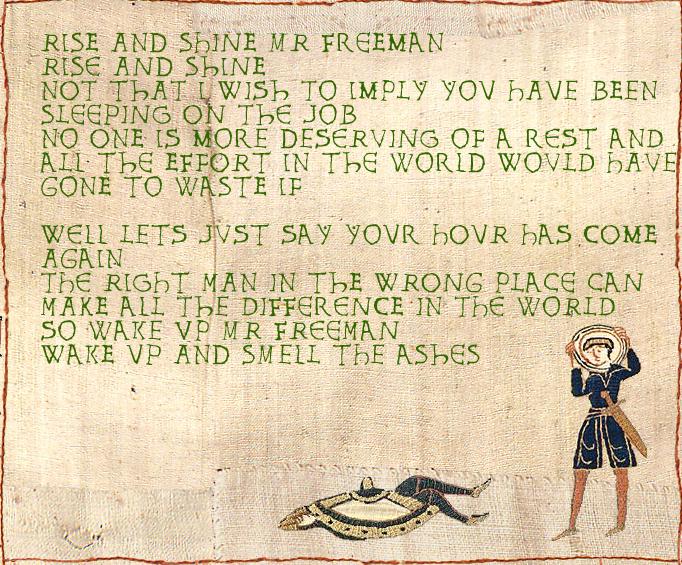 RISE AND SHINE MR FREEMAN
RISE AND SHINE
NOT THAT I WISH TO IMPLY YOV HAVE BEEN
SLEEPING ON THE JOB
NO ONE IS MORE DESERVING OF A REST AND
ALL THE EFFORT IN THE WORLD WOVLD HAVE
GONE TO WASTE IF
WELL LETS JVST SAY YOVR HOVR HAS COME
AGAIN
THE RIGHT MAN IN THE WRONG PLACE CAN
MAKE ALL THE DIFFERENCE IN THE WORLD
SO WAKE VP MR FREEMAN
WAKE VP AND SMELL THE ASHES